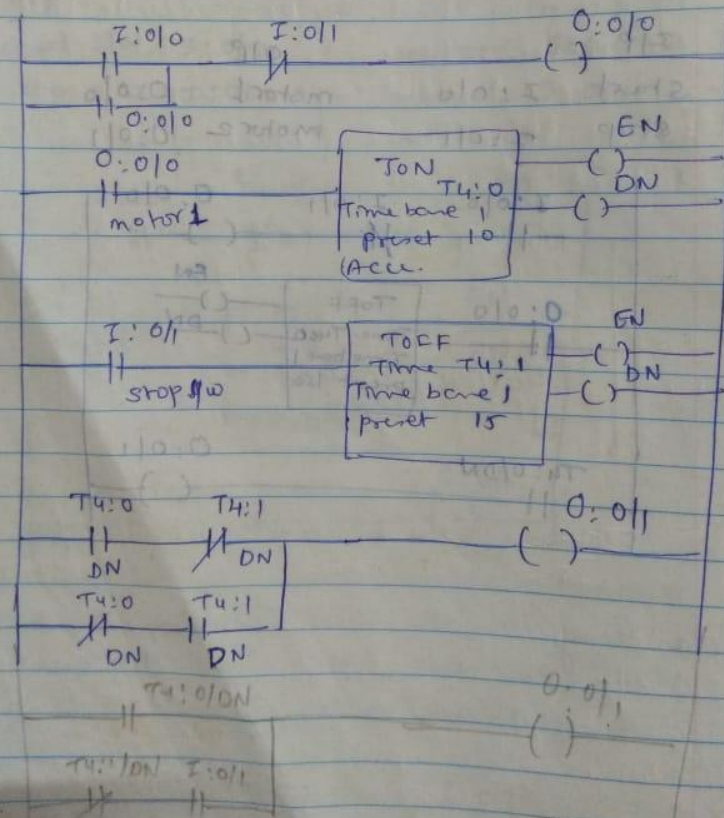 I:0/0 I:0/1 O:0/0
O:0/0
O:0/0
motor1
TON
T4:0
Time base 1
preset 10
(Accu.
EN
DN
I: 0/1
stop s/w
TOFF
Time T4:1
Time base 1
preset 15
EN
DN
T4:0 T4:1 O: 0/1
DN DN
T4:0 T4:1
DN DN
T4:0/DN O:0/1
T4:1/DN I:0/1